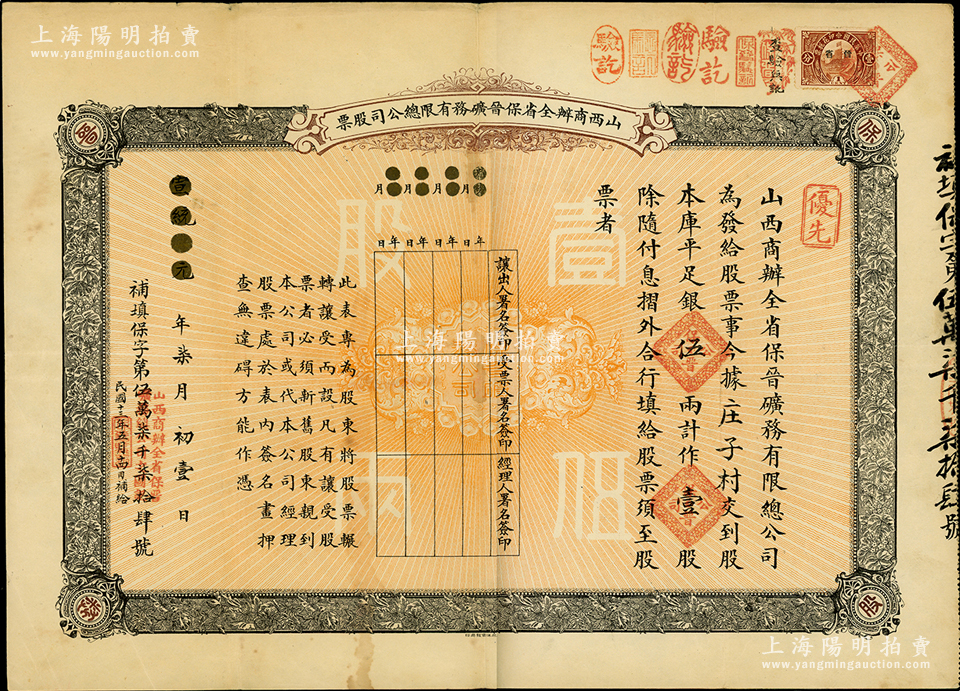 上海陽明拍賣
www.yangmingauction.com
驗訖
驗訖
驗訖
山西商辦全省保晉礦務有限總公司股票
保
晉
股
優先
山西商辦全省保晉礦務有限總公司
為發給股票事今據庄子村交到股
本庫平足銀伍兩計作壹股
除隨付息摺外合行填給股票須至股
票者
壹
伍
股
兩
年月日
年月日
年月日
年月日
讓出人署名簽印
受票人署名簽印
經理人署名簽印
此表專為股東將股票輾
轉讓受而設凡有讓受股
票者必須新舊股東親到
本公司或代本公司經理
股票處於表內簽名畫押
查無違碍方能作憑
宣統元年柒月初壹日
補填保字第伍萬柒千柒拾肆號
民國十三年五月十四日補給
補填保字第伍萬柒千柒拾肆號
上海陽明拍賣
www.yangmingauction.com
上海陽明拍賣
www.yangmingauction.com